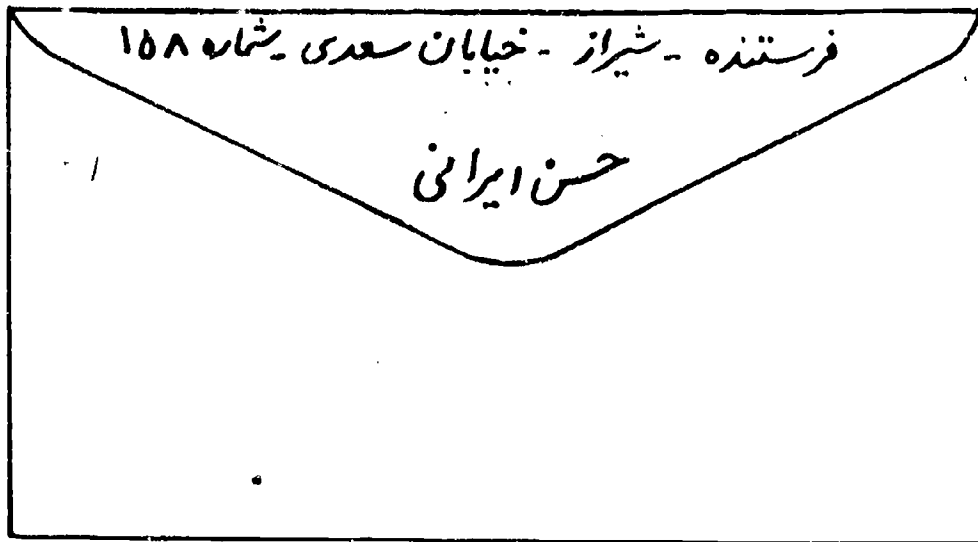 فرستنده - شیراز - خیابان سعدی - شماره ۱۵۸
حسن ایرانی